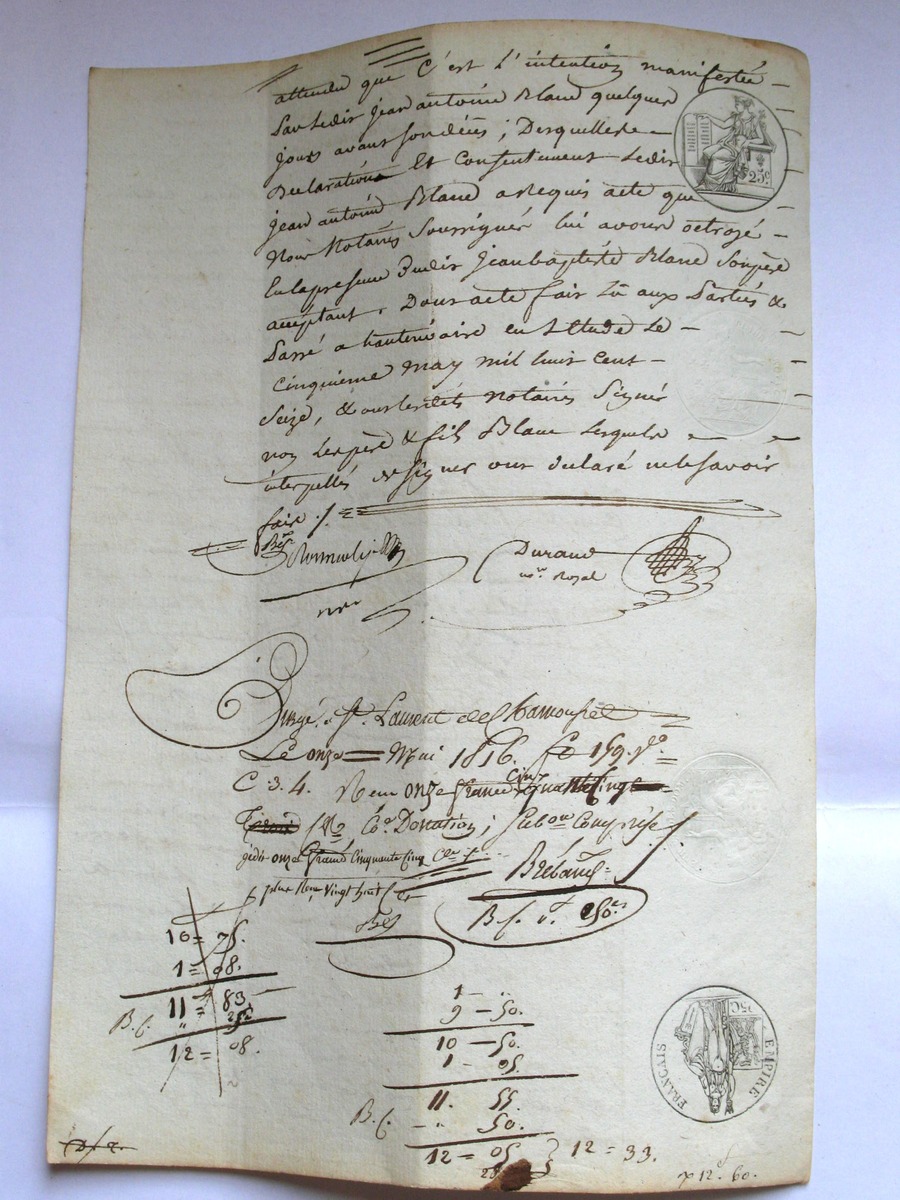 attendu que C'est L'intention manifestée
Par Ledit jean antoine Blanc quelques
jours avant son décès ; Desquelles
Declaration Et Consentement Ledit
jean antoine Blanc a Requis acte que
Nous Notaires Soussignés lui avons octroyé
En la presence dudit jean baptiste Blanc Son père
acceptant. Dont acte fait Lû aux Parties &
Passé a hauterivoire en L'Etude Le
Cinquieme may mil huit Cent
Seize, & ont lesdits notaires Signés
non Les père & fils Blanc Lesquels
interpellés de Signer ont declaré ne le Savoir
faire ./.
Durand
nore. Royal
St. Laurent de Chamousset
Le onze Mai 1816. fo 159. vo
C. 3. 4. Reçu onze francs
Donation ; Subon Comprise
onze francs Cinquante Cinq Ces
plus Reçu Vingt huit
B. f. 250es
10 = 75.
1 = 08.
11 = 83.
B. f. " 25
12 = 08.
1 - "
9 - 50.
10 - 50.
1 - 05.
11. 55.
B. f. - . 50.
12 = 05 } 12 = 33.
28
12. 60.
25c.
EMPIRE FRANÇAIS
25C